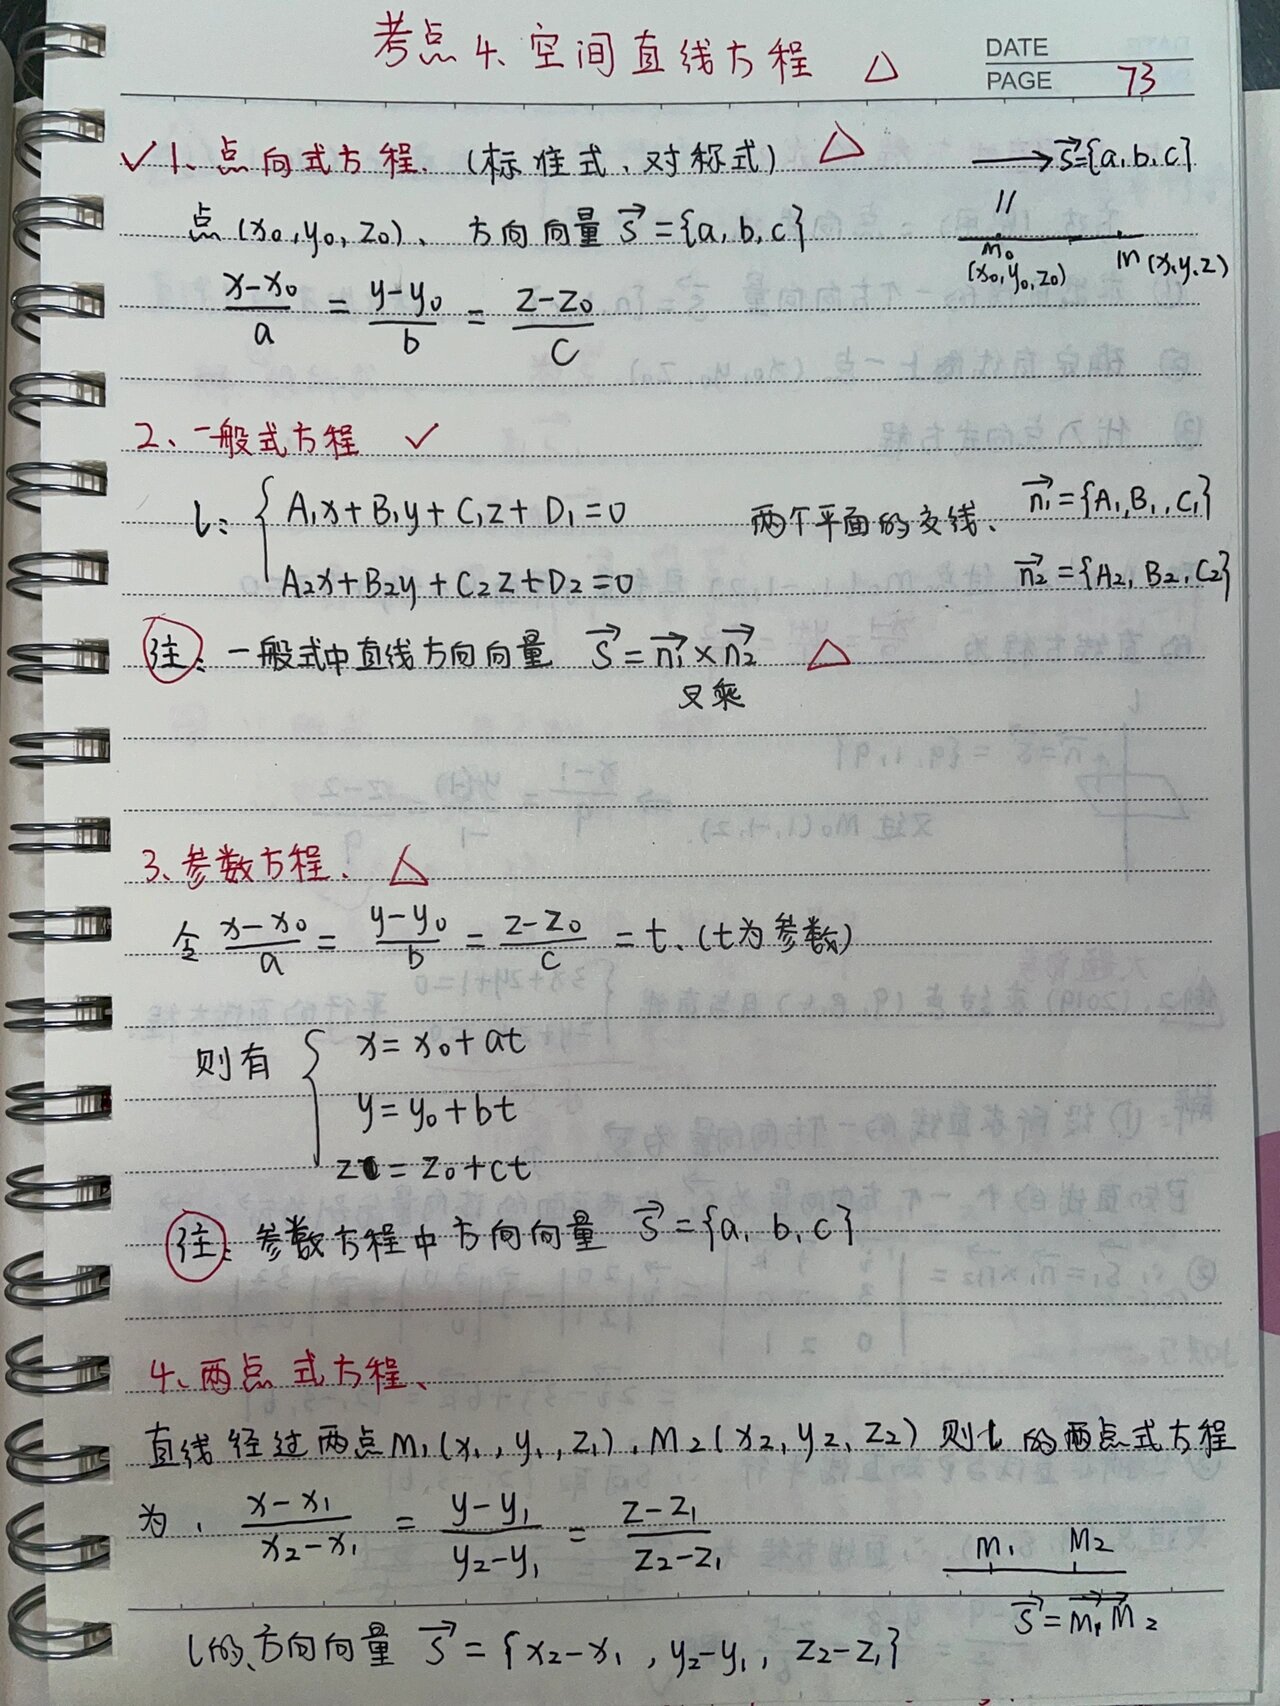 考点4、空间直线方程 △
DATE
PAGE 73
✓1、点向式方程.(标准式、对称式) △
→ s⃗={a,b,c}
点(x₀,y₀,z₀)、方向向量 s⃗={a,b,c}
//
M₀ (x₀,y₀,z₀) M(x,y,z)
(x-x₀)/a = (y-y₀)/b = (z-z₀)/c
2、一般式方程 ✓
l: { A₁x+B₁y+C₁z+D₁=0 两个平面的交线、 n₁⃗={A₁,B₁,C₁}
A₂x+B₂y+C₂z+D₂=0 n₂⃗={A₂,B₂,C₂}
注: 一般式中直线方向向量 s⃗=n₁⃗×n₂⃗ △
叉乘
3、参数方程、 △
令 (x-x₀)/a = (y-y₀)/b = (z-z₀)/c = t、(t为参数)
则有 { x=x₀+at
y=y₀+bt
z=z₀+ct
注: 参数方程中方向向量 s⃗={a,b,c}
4、两点式方程、
直线经过两点M₁(x₁,y₁,z₁),M₂(x₂,y₂,z₂) 则l的两点式方程
为, (x-x₁)/(x₂-x₁) = (y-y₁)/(y₂-y₁) = (z-z₁)/(z₂-z₁)
M₁ M₂
s⃗=M₁M₂⃗
l的方向向量 s⃗={x₂-x₁,y₂-y₁,z₂-z₁}